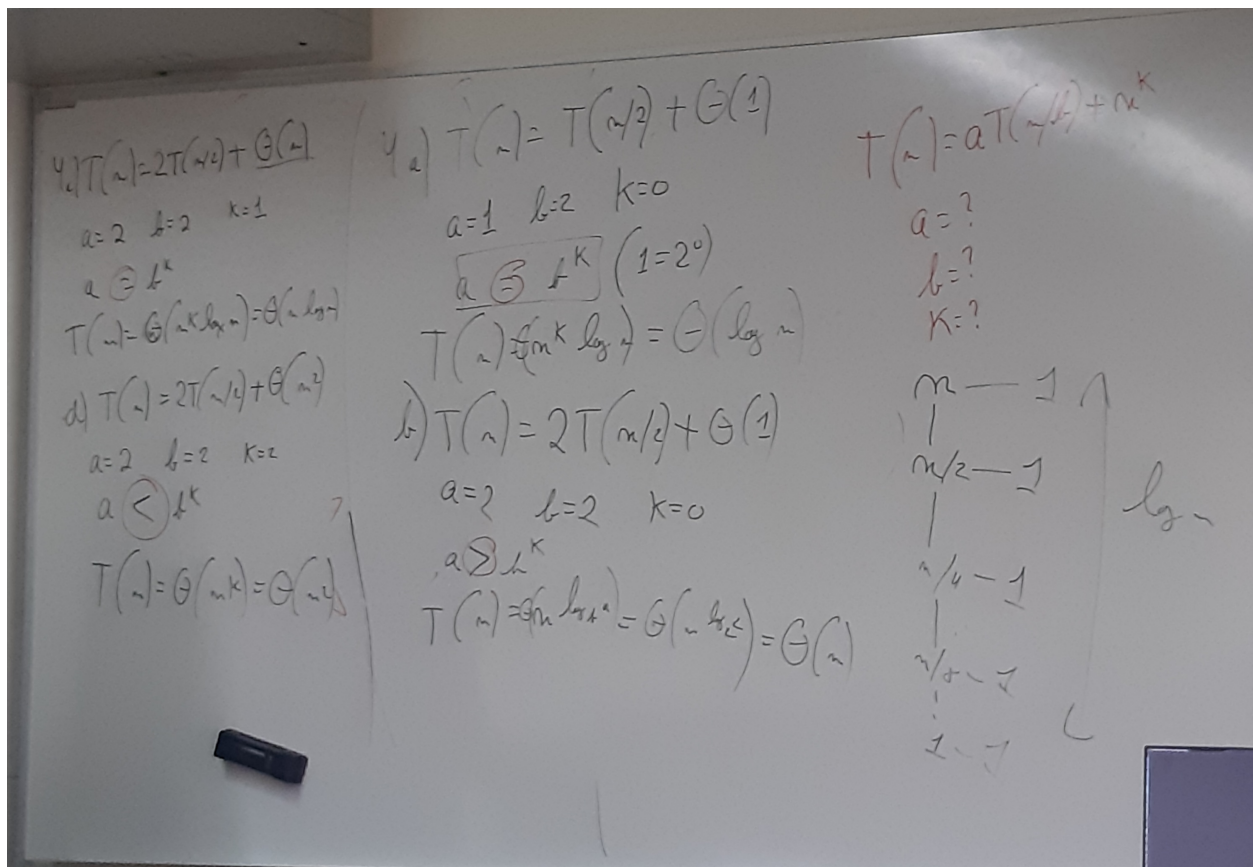 4c) T(n) = 2T(n/2) + Θ(n)
a=2 b=2 k=1
a = b^k
T(n) = Θ(n^k log n) = Θ(n log n)
d) T(n) = 2T(n/2) + Θ(n²)
a=2 b=2 k=2
a < b^k
T(n) = Θ(n^k) = Θ(n²)
4a) T(n) = T(n/2) + Θ(1)
a=1 b=2 k=0
a = b^k (1=2⁰)
T(n) = Θ(n^k log n) = Θ(log n)
b) T(n) = 2T(n/2) + Θ(1)
a=2 b=2 k=0
a > b^k
T(n) = Θ(n^log_b a) = Θ(n^log_2 2) = Θ(n)
T(n) = aT(n/b) + n^k
a=?
b=?
k=?
n — 1
n/2 — 1
n/4 — 1
n/8 — 1
1 — 1
lg n